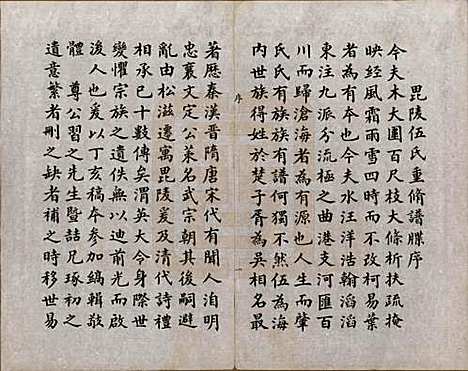 毘陵伍氏重脩譜牒序
今夫木大圍百尺枝大條析扶疏掩
映經風霜雨雪四時而不改柯易葉
者為有本也今夫水汪洋浩翰滔滔
東注九派分流極之曲港支河匯百
川而歸滄海者為有源也人生而肇
氏氏有族族有譜何獨不然伍為海
內世族得姓於楚子胥為吳相名最
序
一
著歷秦漢晉隋唐宋代有聞人洎明
忠襄文定公萊名武宗朝其後嗣避
亂由松滋遷寓毘陵爰及清代詩禮
相承已十數傳矣渭英大令身際世
變懼宗族之遺佚無以迪前光而啟
後人也爰以丁亥稿本參加編輯敬
體　尊公習之先生暨喆兄琢初之
遺意繁者刪之缺者補之時移世易